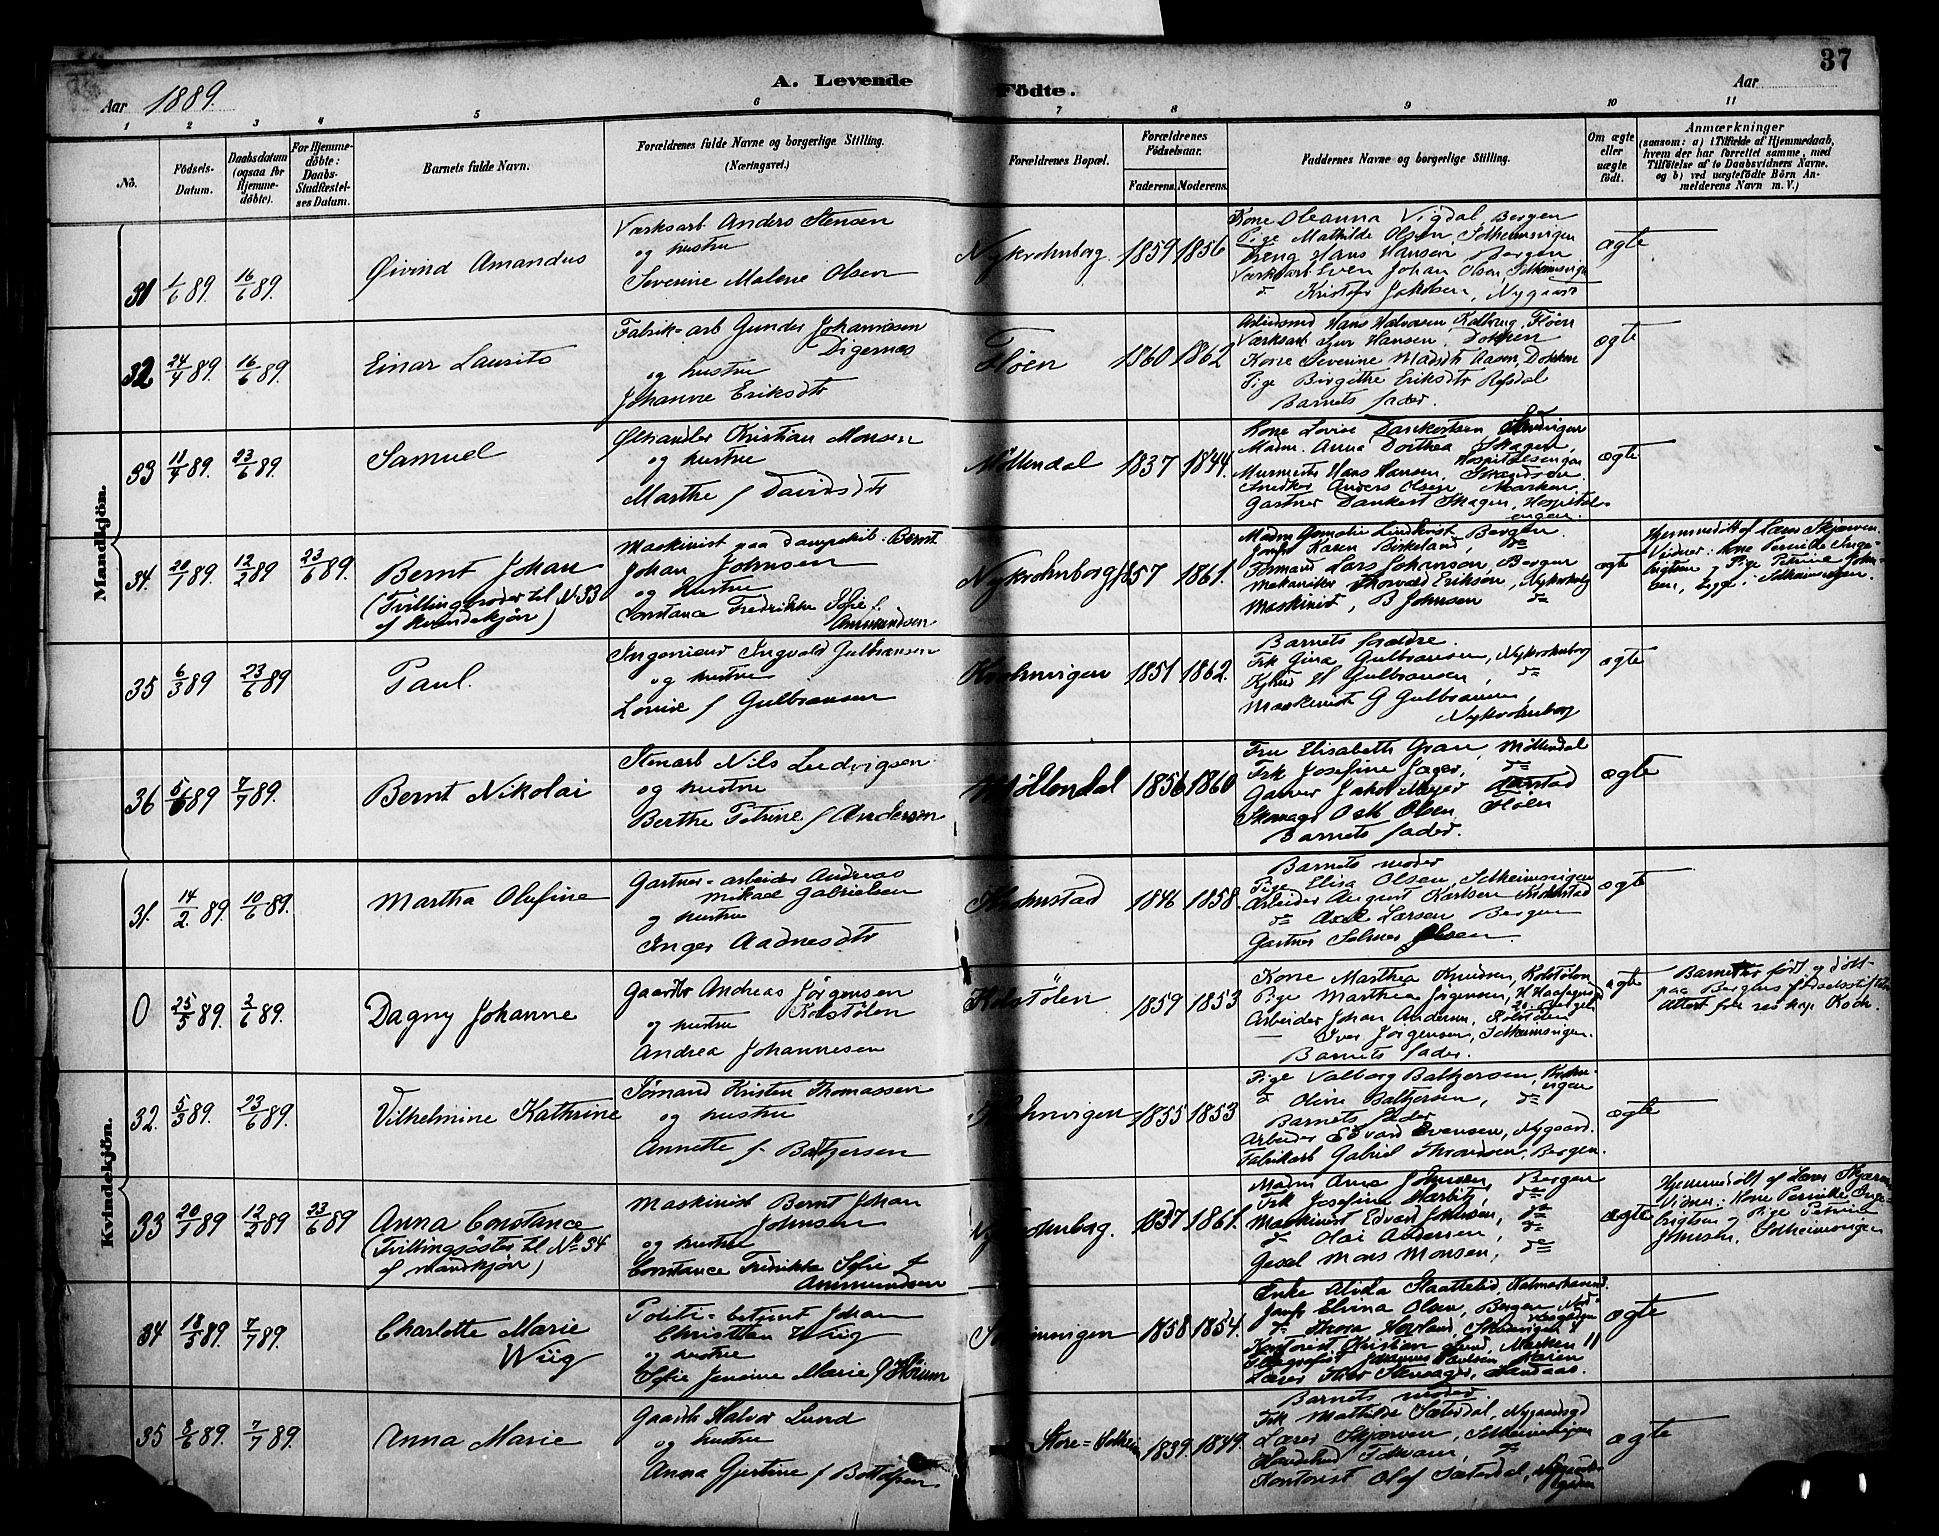 37
Aar 1889.
A. Levende Födte.
Aar
1 2 3 4 5 6 7 8 9 10 11
No.
Födsels-Datum.
Daabsdatum (ogsaa for Hjemmedöbte).
For Hjemmedöbte: Daabs-Stadfæstelses Datum.
Barnets fulde Navn.
Forældrenes fulde Navne og borgerlige Stilling. (Næringsvei.)
Forældrenes Bopæl.
Forældrenes Födselsaar.
Faderens. Moderens.
Faddernes Navne og borgerlige Stilling.
Om ægte eller uægte födt.
Anmærkninger
(saasom: a) i Tilfælde af Hjemmedaab, hvem der har forrettet samme, med Tilföielse af to Daabsvidners Navne. og b) ved uægtefödte Börn Anmelderens Navn m. V.)
Mandkjön.
31 1/6 89. 16/6 89. Øivind Amandus
Værksarb Anders Stensen
og hustru
Severine Malene Olsen
Nykrohnborg. 1859 1856
Kone Oleanna Vigdal, Bergen
Pige Mathilde Olsen, Solheimsvigen
Dreng Hans Hansen Bergen
Værksarb Sven Johan Olsen Solheimsvigen
do Kristofer Jakobsen, Nygaard
ægte
32 24/4 89. 16/6 89. Einar Laurits
Fabrik=arb Gunder Johannesen
Digernes
og hustru
Johanne Eriksdtr
Fløen 1860 1862
Hans Halvorsen, Kalbrug, Fløen
Værksarb Hansen, Dokken
Kone Severine Madsdtr Aasen, Dokken
Pige Birgithe Eriksdtr Refsdal
Barnets fader.
ægte
33 11/4 89. 23/6 89. Samuel
Kristian Monsen
og hustru
Marthe f Davidsdtr
Møllendal 1837 1844.
Kone Lovise Dankertsen
Madm. Anna Dorthea Skagen, Hospitalsengen
Murmester Hans Hansen,
Snedker Anders Olsen Marken
Gartner Dankert Skagen, Hospitalsengen.
ægte
34. 20/1 89. 12/2 89 23/6 89. Bernt Johan
(Tvillingbroder til N 33
af Kvindekjøn)
Maskinist paa Dampskib. Bernt
Johan Johnsen
og Hustru
Constance Fredrikke Sofie f.
Ammundsen
Nykrohnborg 1857 1861.
Madm Lindkvist Bergen.
Jomfr Karen Birkeland, do
Formand Lars Johansson, Bergen
Mekaniker Thorvald Eriksen, Nykrohnbg
Maskinist, B Johnsen do
ægte
Hjemmedøbt af Lærer Skjærven.
Vidner: Kone Pernille Ingebrigtsen
og Pige Petrine Johnsen,
Solheimsvigen.
35 6/3 89 23/6 89 Paul.
Ingeniør Ingvald Gulbransen
og hustru
Lovise f Gulbransen
Krohnvigen 1851 1862.
Barnets forældre.
Frk Gina Gulbransen, Nykrohnborg
H Gulbransen, do
Maskinist G Gulbransen,
Nykrohnborg
ægte
36 5/6 89 7/7 89. Bernt Nikolai
Stenarb Nils Ludvigsen
og hustru
Berthe Petrine f Andersen
Møllendal 1856 1860
Fru Elisabeth Gran, Møllendal
Frk Josefine Jæger, do
Garver Jakob Meyer Aarstad
Skomager Ask Olsen Fløen
Barnets fader.
ægte
Kvindekjön.
31. 14/2. 89. 10/6 89. Martha Olufine
Gartner=arbeider Andreas
Mikael Gabrielsen
og hustru
Inger Aadnesdtr
Krohnstad 1846 1858.
Barnets moder
Pige Elisa Olsen, Solheimsvigen
Arbeider August Karlsen Krohnstad
do Axel Larsen Bergen
Gartner Selmer Olsen.
ægte
0 25/5 89. 2/6 89. Dagny Johanne
Gaardbr Andreas Jørgensen
og hustru Kolstølen
Andrea Johannesen
Kolstølen 1859 1853
Kone Marthea Knudsen, Kolstølen
Pige Marthea Jørgensen,
Arbeider Johan Andersen, Kolstølen
— Iver Jørgensen, Solheimsvigen.
Barnets fader.
ægte
Barnet er født og døbt
paa Bergens fødselsstiftelse
Attest fra res kap. Koch.
32. 5/3 89. 23/6 89. Vilhelmine Kathrine
Sømand Kristen Thomassen
og hustru
Annette f. Baltzersen
Krohnvigen 1855 1853
Pige Valborg Baltzersen, Krohnvigen
do Oline Baltzersen, do
Barnets fader
Arbeider Edvard Evensen, Nygaard.
Fabrikarb Gabriel Thronsen, Bergen.
ægte
33 20/1 89 12/2 89 23/6 89 Anna Constance
(Tvillingsøster til No 34
af mandkjøn)
Maskinist Bernt Johan
Johnsen
og hustru
Constance Fredrikke Sofie f
Ammundsen
Nykrohnborg. 1857 1861.
Madm Anna Johnsen, Bergen
Frk Josefine Harbitz, do
Maskinist Edvard Johnsen, do
do Olai Andersen, do
Gesel Mons Monsen, do
ægte
Hjemmedøbt af Lærer Skjærven
Vidner: Kone Pernille Ingebrigtsen
og Pige Petrine
Johnsen, Solheimsvigen
34 18/5 89. 7/7 89. Charlotte Marie
Wiig
Politi=betjent Johan
Christian Wiig
og hustru
Sofie Jensine Marie f
Solheimsvigen 1858 1854.
Enke Alida
Jomfr Elvina Olsen, Bergen
do Thora Hovland,
Kontorist Kristian Lund, Marken 11
Telegrafist Johannes Paulsen,
Lærer Stensager, Landaas.
ægte
35 8/6 89. 7/7 89. Anna Marie
Gaardbr Halvor Lund
og hustru
Anna Gjertine f Bottolfsen.
Store=Solheim 1839. 1849.
Barnets moder.
Frk Mathilde Sæterdal, Nygaardsgd
Lærer Skjærven, Solheimsvigen
do
Kontorist Olaf Sæterdal, Nygaardsgaden
ægte